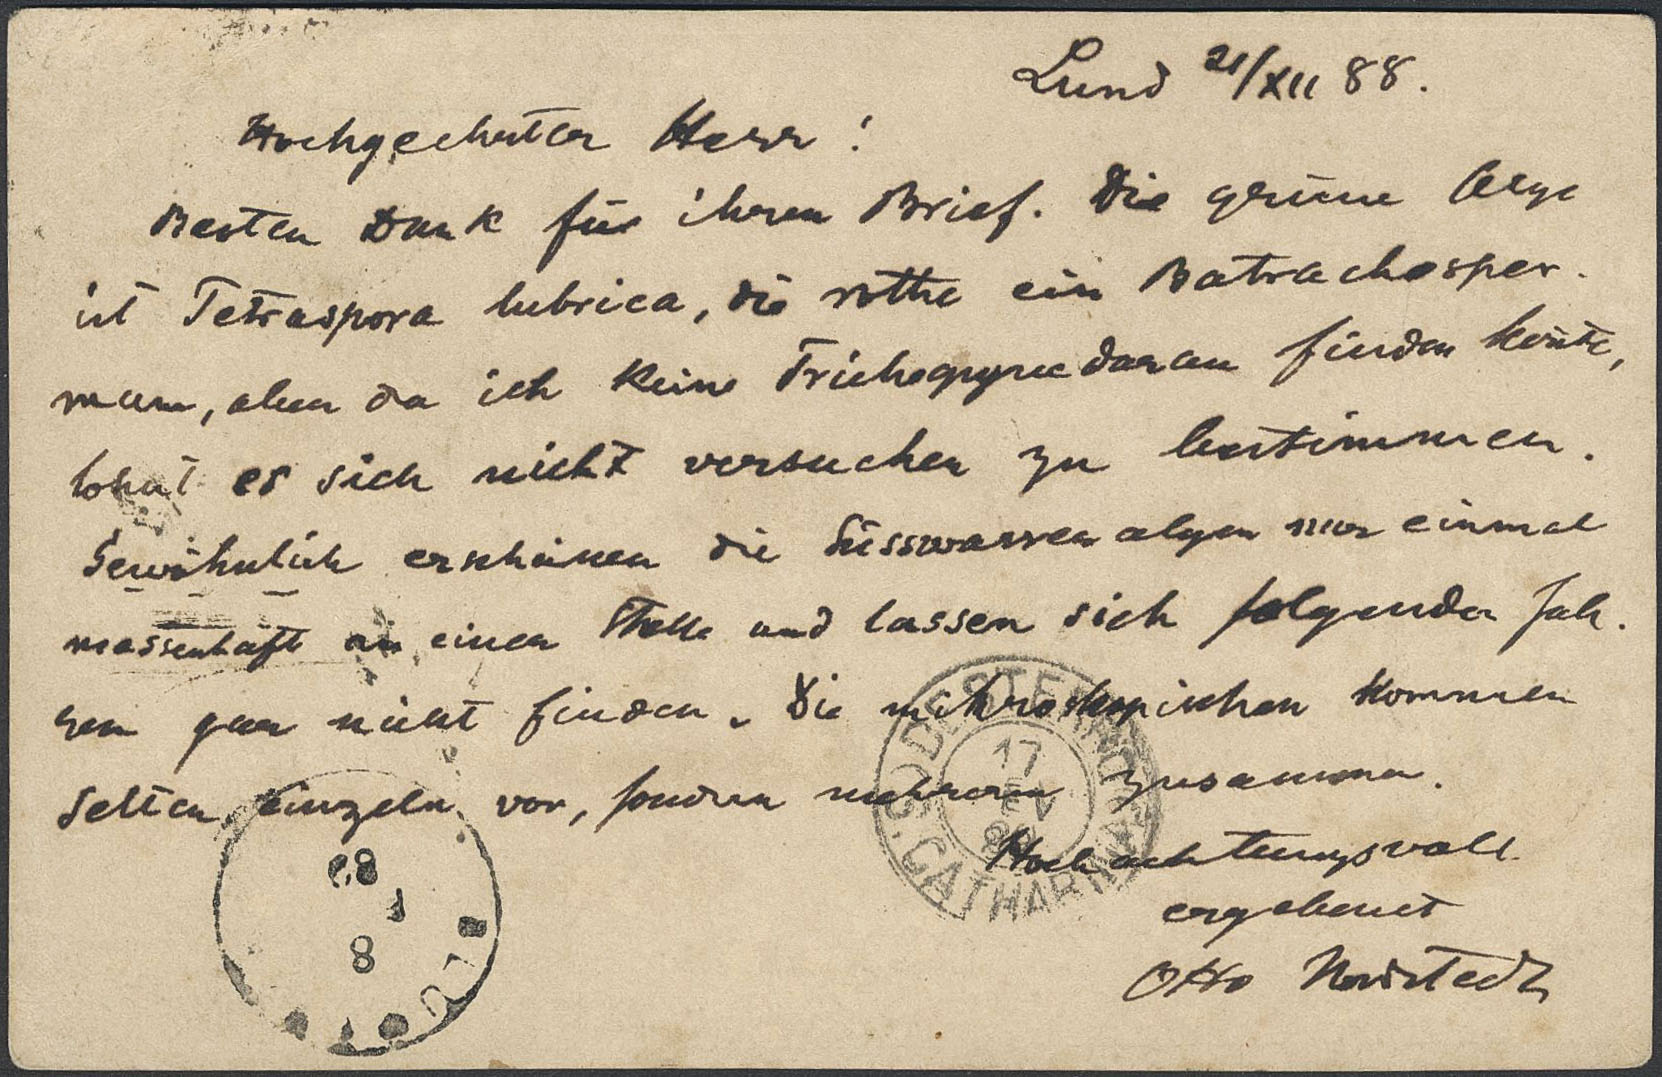 Lund 21/XII 88.
Hochgeehrter Herr!
Besten Dank für ihren Brief. Die grüne Alge
ist Tetraspora lubrica, die rothe ein Batrachosper-
mum, aber da ich keine Trichogyne daran finden könte,
lohnt es sich nicht versuchen zu bestimmen.
Gewöhnlich erscheinen die Süsswasseralgen nur einmal
massenhaft an einer Stelle und lassen sich folgenden Jah-
ren gar nicht finden. Die mikroskopischen kommen
selten einzeln vor, sondern mehreren zusammen.
Hochachtungsvoll
ergebenst
Otto Nordstedt
DESTERRO
17
FEV
CATHARINA
8
1